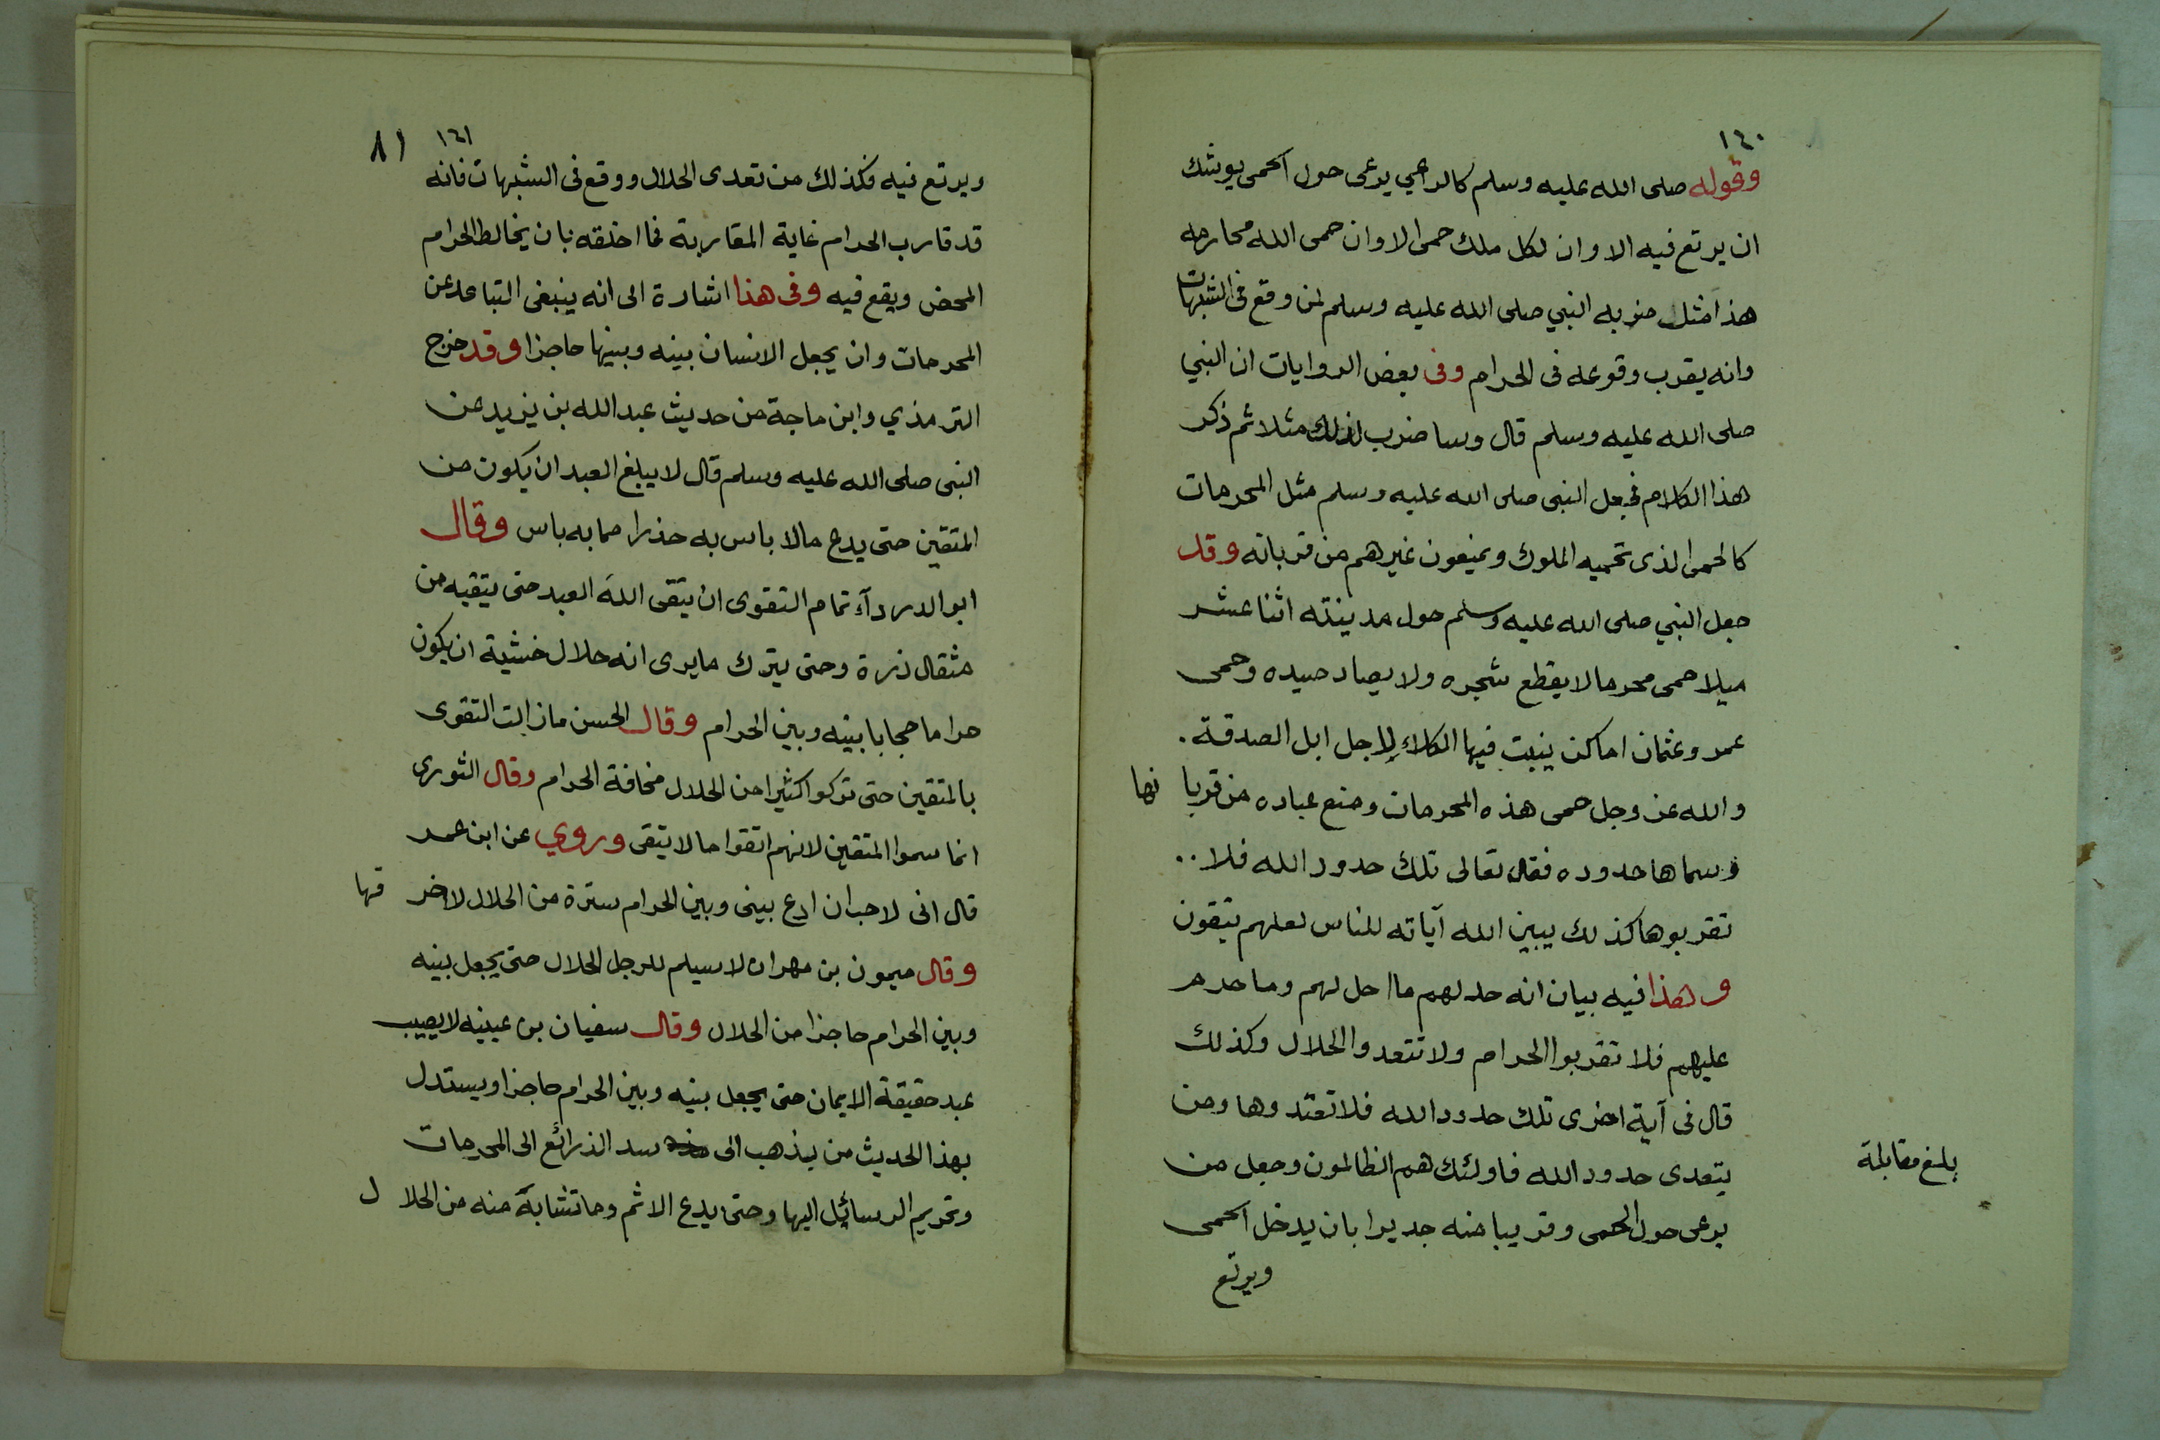 ١٦٠
وقوله صلى الله عليه وسلم كالراعي يرعى حول الحمى يوشك
ان يرتع فيه الا وان لكل ملك حمى الا وان حمى الله محارمه
هذا مثل ضربه النبي صلى الله عليه وسلم لمن وقع فى الشبهات
وانه يقرب وقوعه فى الحرام وفى بعض الروايات ان النبي
صلى الله عليه وسلم قال وسا ضرب لذلك مثلا ثم ذكر
هذا الكلام فجعل النبى صلى الله عليه وسلم مثل المحرمات
كالحمى الذى تحميه الملوك ويمنعون غيرهم من قربانه وقد
جعل النبي صلى الله عليه وسلم حول مدينته اثنا عشر
ميلا حمى محرما لا يقطع شجره ولا يصاد صيده وحمى
عمر وعثمان اماكن ينبت فيها الكلاء لاجل ابل الصدقة.
والله عز وجل حمى هذه المحرمات ومنع عباده من قربا نها
وسماها حدوده فقال تعالى تلك حدود الله فلا..
تقربوها كذلك يبين الله آياته للناس لعلهم يتقون
وهذا فيه بيان انه حد لهم ما احل لهم وما حرم
عليهم فلا تقربوا الحرام ولا تتعدوا الحلال وكذلك
قال فى آية اخرى تلك حدود الله فلا تعتدوها ومن
يتعدى حدود الله فاولئك هم الظالمون وجعل من
يرعى حول الحمى وقريبا منه جديرا بان يدخل الحمى
ويرتع
بلغ مقابلة
١٦١
٨١
ويرتع فيه فكذلك من تعدى الحلال ووقع فى الشبهات فانه
قد قارب الحرام غاية المقاربة فما اخلقه بان يخالط الحرام
المحض ويقع فيه وفى هذا اشارة الى انه ينبغى التباعد عن
المحرمات وان يجعل الانسان بينه وبينها حاجزا وقد خرج
الترمذي وابن ماجة من حديث عبد الله بن يزيد عن
النبى صلى الله عليه وسلم قال لا يبلغ العبد ان يكون من
المتقين حتى يدع مالا باس به حذرا مما به باس وقال
ابو الدردآء تمام التقوى ان يتقى الله العبد حتى يتقيه من
مثقال ذرة وحتى يترك ما يرى انه حلال خشية ان يكون
حراما حجابا بينه وبين الحرام وقال الحسن ما زالت التقوى
بالمتقين حتى تركوا كثيرا من الحلال مخافة الحرام وقال الثورى
انما سموا المتقين لانهم اتقوا ما لا يتقى وروي عن ابن عمر
قال انى لاحب ان ادع بينى وبين الحرام سترة من الحلال لا اخر قها
وقال ميمون بن مهران لا سيلم للرجل الحلال حتى يجعل بينه
وبين الحرام حاجزا من الحلال وقال سفيان بن عيينه لا يصيب
عبد حقيقة الايمان حتى يجعل بينه وبين الحرام حاجزا ويستدل
بهذا الحديث من يذهب الى سد الذرائع الى المحرمات
وتحريم الرسائل اليها وحتى يدع الاثم وما تشابه منه من الحلا ل